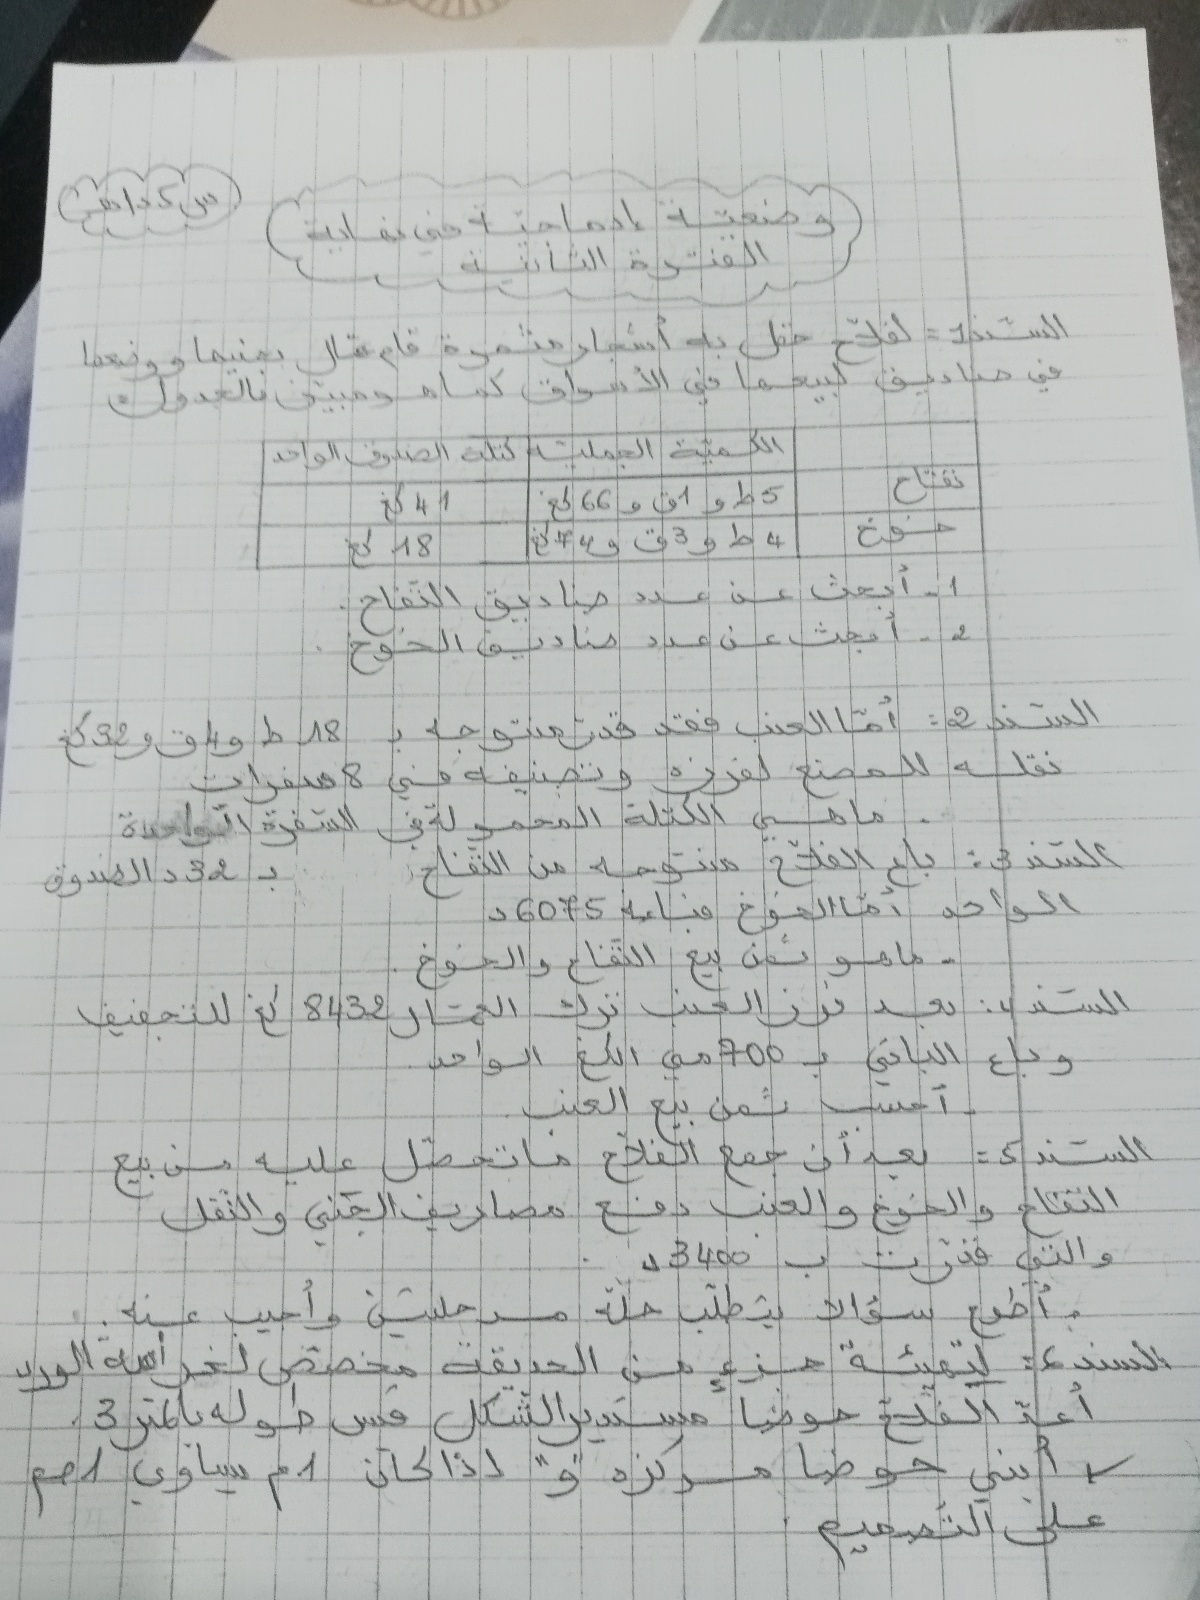 س5 دامـ
وضعية إدماجية في نهاية
الفترة الثانية
السند1= لفلاّح حقل به أشجار مثمرة قام بجنيها ووضعها
في صناديق لبيعها في الأسواق كما هو مبين بالجدول
الكميّة الجمليّة كتلة الصندوق الواحد
تفّاح 5ط و1ق و66كغ 41كغ
خوخ 4ط و3ق و74كغ 18كغ
1- أبحث عن عدد صناديق التفاح.
2- أبحث عن عدد صناديق الخوخ.
السند2: أمّا العنب فقد قدّر منتوجه بـ 18ط و4ق و32كغ
نقله للمصنع لفرزه وتصنيفه في 8 سفرات
- ماهي الكتلة المحمولة في السّفرة الواحدة
السند3: باع الفلاّح منتوجه من التّفاح بـ 32د الصندوق
الواحد أمّا الخوخ فباعه 6075د
- ماهو ثمن بيع التّفاح والخوخ.
السند4: بعد فرز العنب ترك 8432كغ للتجفيف
وباع الباقي بـ 700مي الكغ الواحد.
- أحسب ثمن بيع العنب.
السند5= بعد أن جمع الفلاّح ما تحصّل عليه من بيع
التّفاح والخوخ والعنب دفع مصاريف الجني والنّقل
والتي قدّرت ب 3400د.
- أطرح سؤالا يتطلّب حلّه مرحلتين وأجيب عنه.
السند6: لتهيئة جزء من الحديقة مخصّص لغراسة الورد
أعدّ الفلاّح حوضا مستدير الشّكل قيس طوله بالمتر 3.
✓ أبني حوضا مركزه "و" إذا كان 1م يساوي 1صم
على التّصميم.